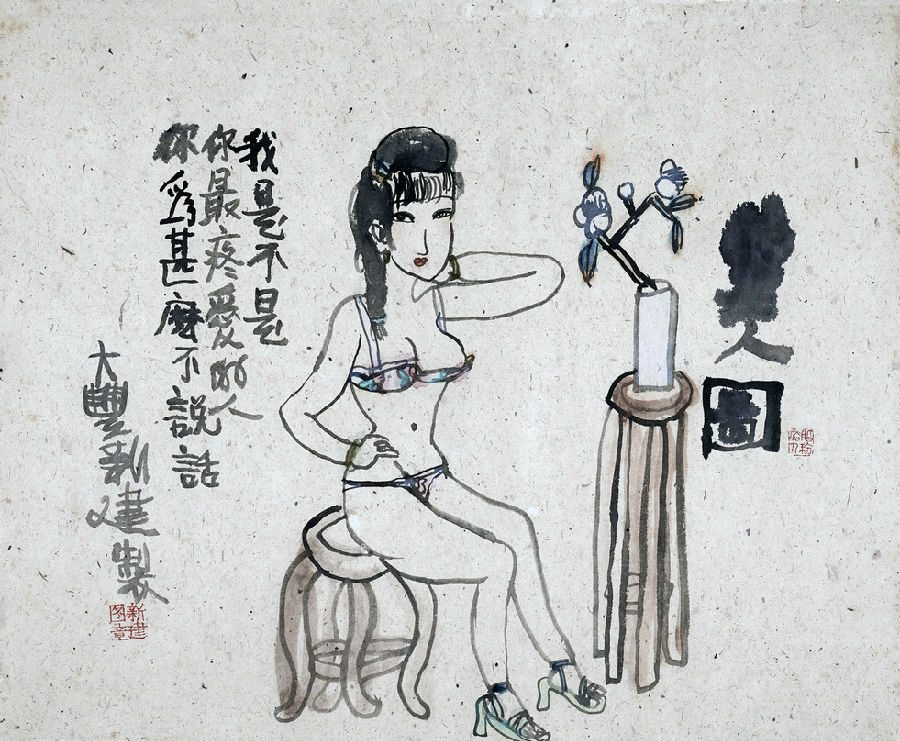 美人圖
我是不是
你最疼愛的人
你爲甚麽不說話
大豐新建製
新建圖章